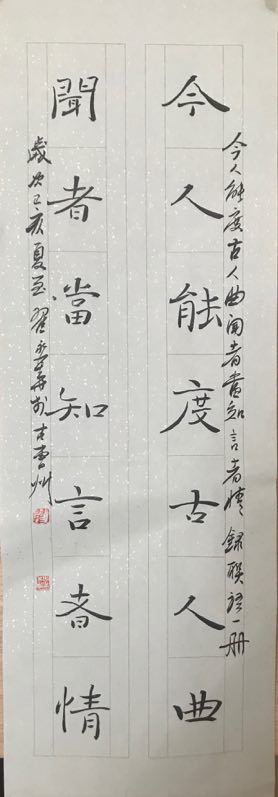 今人能度古人曲聞者當知言者情錄聯語一冊
今人能度古人曲
聞者當知言者情
歲次己亥夏至翟於古曹州